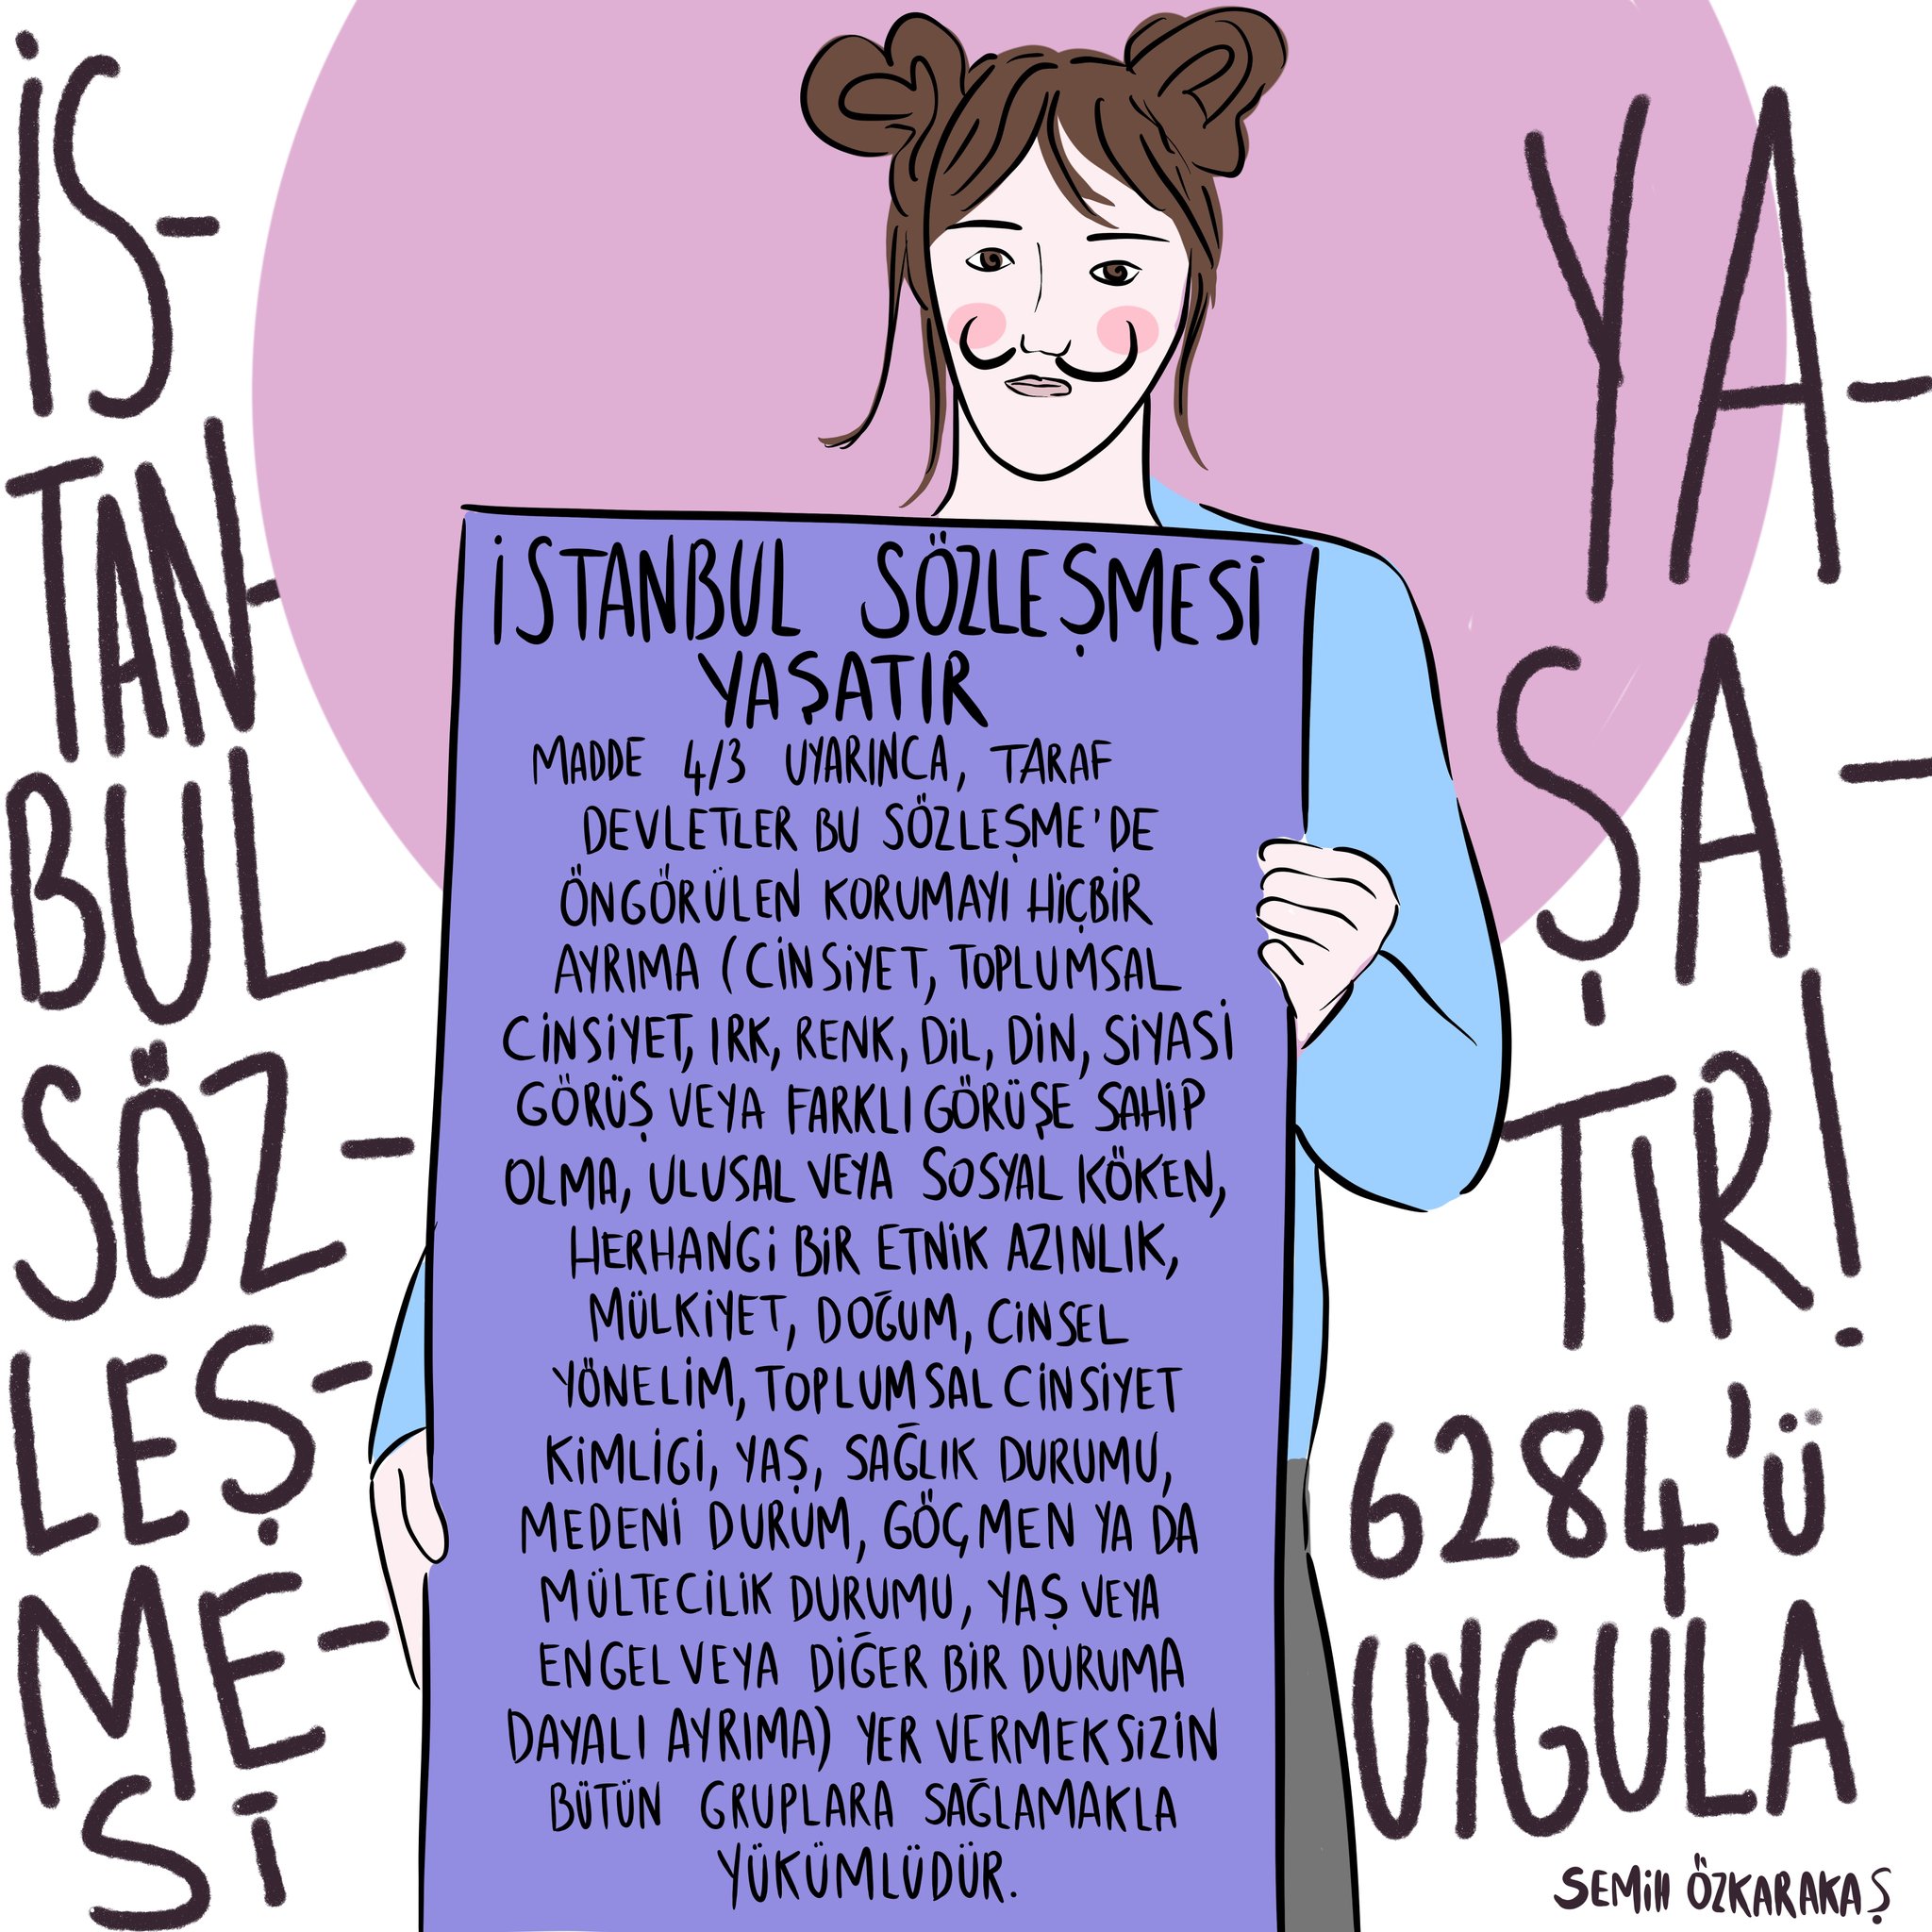 İS-
TAN-
BUL
SÖZ-
LEŞ-
ME-
Sİ
YA-
ŞA-
TIR!
6284'Ü
UYGULA
İSTANBUL SÖZLEŞMESİ
YAŞATIR
MADDE 4/3 UYARINCA, TARAF
DEVLETLER BU SÖZLEŞME'DE
ÖNGÖRÜLEN KORUMAYI HİÇBİR
AYRIMA (CİNSİYET, TOPLUMSAL
CİNSİYET, IRK, RENK, DİL, DİN, SİYASİ
GÖRÜŞ VEYA FARKLI GÖRÜŞE SAHİP
OLMA, ULUSAL VEYA SOSYAL KÖKEN,
HERHANGİ BİR ETNİK AZINLIK,
MÜLKİYET, DOĞUM, CİNSEL
YÖNELİM, TOPLUMSAL CİNSİYET
KİMLİGİ, YAŞ, SAĞLIK DURUMU,
MEDENİ DURUM, GÖÇMEN YA DA
MÜLTECİLİK DURUMU, YAŞ VEYA
ENGEL VEYA DİĞER BİR DURUMA
DAYALI AYRIMA) YER VERMEKSİZİN
BÜTÜN GRUPLARA SAĞLAMAKLA
YÜKÜMLÜDÜR.
SEMİH ÖZKARAKAŞ